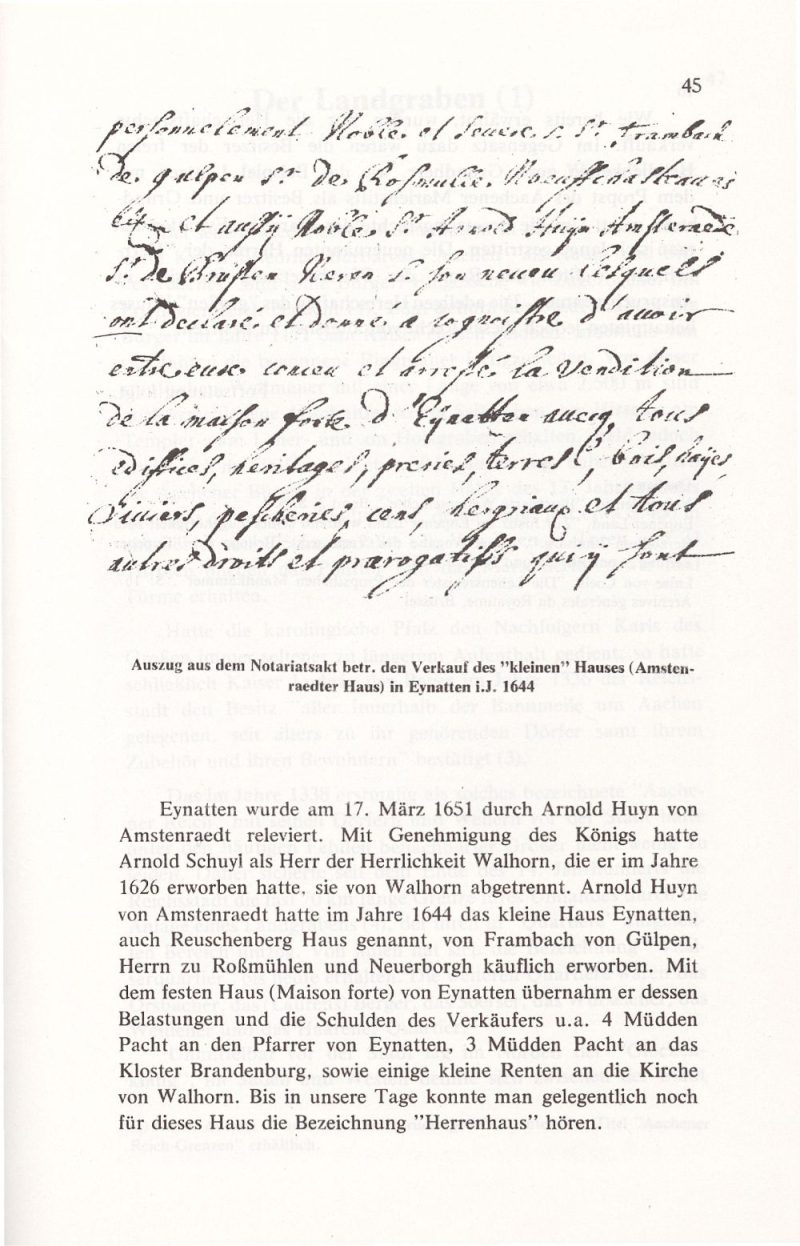 45
personnelement Noble et
de gulpen Sr de
et aussÿ Noble Sr Arnold Huÿn Amstenraede
Sr de son neveu Lesquels
ont declaré et donne a cognoistre d'avoir
entre eux conceu et arresté la vendition
de la maison forte d'Eÿnatten avecq tous
edifices, heritages, preries, terres, bois, haÿes,
viviers, pescheries, cens, et tous
autres droits et prærogatifs quiÿ sont
Auszug aus dem Notariatsakt betr. den Verkauf des "kleinen" Hauses (Amsten-
raedter Haus) in Eynatten i.J. 1644
Eynatten wurde am 17. März 1651 durch Arnold Huyn von
Amstenraedt releviert. Mit Genehmigung des Königs hatte
Arnold Schuyl als Herr der Herrlichkeit Walhorn, die er im Jahre
1626 erworben hatte, sie von Walhorn abgetrennt. Arnold Huyn
von Amstenraedt hatte im Jahre 1644 das kleine Haus Eynatten,
auch Reuschenberg Haus genannt, von Frambach von Gülpen,
Herrn zu Roßmühlen und Neuerborgh käuflich erworben. Mit
dem festen Haus (Maison forte) von Eynatten übernahm er dessen
Belastungen und die Schulden des Verkäufers u.a. 4 Müdden
Pacht an den Pfarrer von Eynatten, 3 Müdden Pacht an das
Kloster Brandenburg, sowie einige kleine Renten an die Kirche
von Walhorn. Bis in unsere Tage konnte man gelegentlich noch
für dieses Haus die Bezeichnung "Herrenhaus" hören.